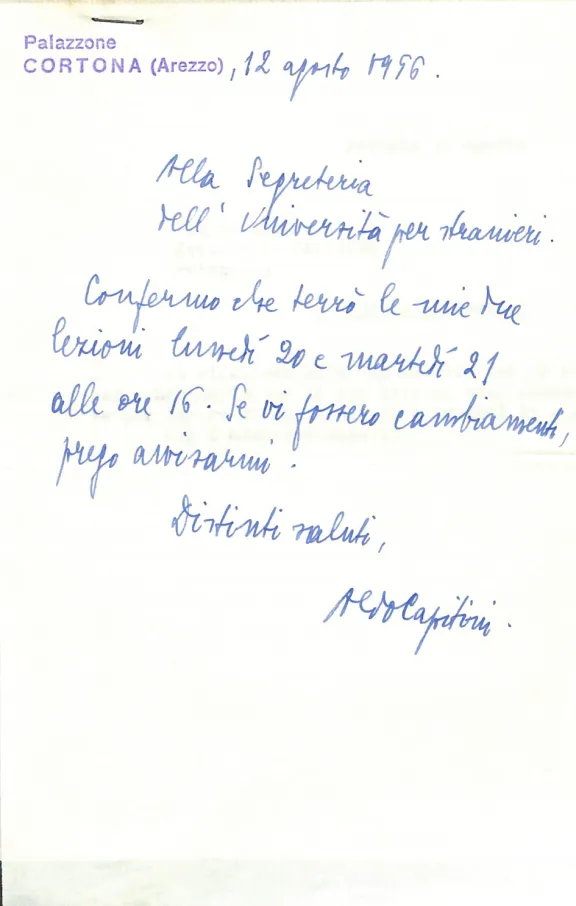 Palazzone
CORTONA (Arezzo), 12 agosto 1956.
Alla Segreteria
dell' Università per stranieri.
Confermo che terrò le mie due
lezioni lunedí 20 e martedí 21
alle ore 16. Se vi fossero cambiamenti,
prego avvisarmi.
Distinti saluti,
Aldo Capitini.